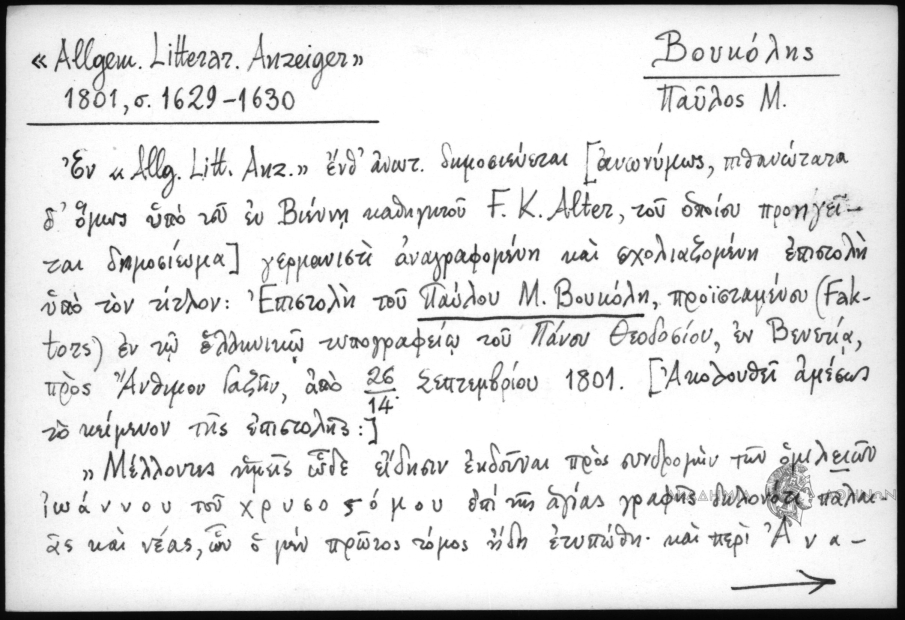 « Allgem. Litterar. Anzeiger »
1801, σ. 1629-1630
Βουκόλης
Παῦλος Μ.
Ἐν « Allg. Litt. Anz. » ἔνθ' ἀνωτ. δημοσιεύεται [ἀνωνύμως, πιθανώτατα
δ' ὅμως ὑπὸ τοῦ ἐν Βιέννῃ καθηγητοῦ F. K. Alter, τοῦ ὁποίου προηγεῖ-
ται δημοσίευμα] γερμανιστὶ ἀναγραφομένη καὶ σχολιαζομένη ἐπιστολὴ
ὑπὸ τὸν τίτλον: Ἐπιστολὴ τοῦ Παύλου Μ. Βουκόλη, προϊσταμένου (Fak-
tors) ἐν τῷ ἑλληνικῷ τυπογραφείῳ τοῦ Πάνου Θεοδοσίου, ἐν Βενετίᾳ,
πρὸς Ἄνθιμον Γαζῆν, ἀπὸ 26/14 Σεπτεμβρίου 1801. [Ἀκολουθεῖ ἀμέσως
τὸ κείμενον τῆς ἐπιστολῆς:]
" Μέλλοντες ἡμεῖς ὧδε εἴδησιν ἐκδοῦναι πρὸς συνδρομὴν τῶν ὁμιλειῶν
ἰωάννου τοῦ χρυσοστόμου ἐπὶ τῆς ἁγίας γραφῆς δηλονότι παλαι-
ᾶς καὶ νέας, ὧν ὁ μὲν πρῶτος τόμος ἤδη ἐτυπώθη· καὶ περὶ Ἀνα-